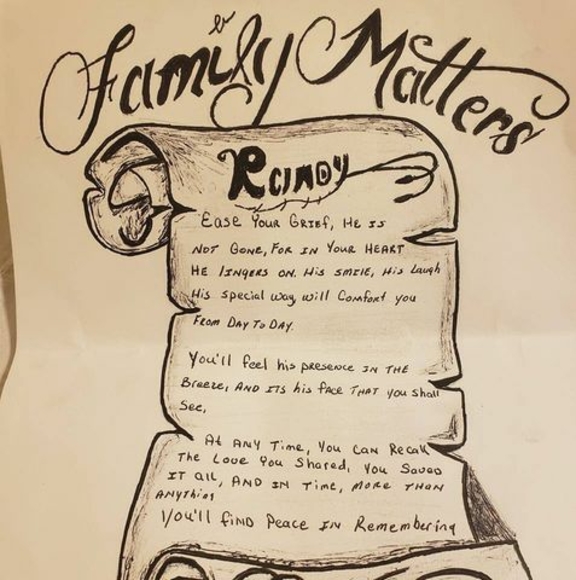 Family Matters
Randy
Ease Your Grief, He is
not Gone, For in Your Heart
He lingers on. His smile, His laugh
His special way will Comfort you
From Day To Day.
You'll feel his presence in the
Breeze, And its his face that you shall
See,
At Any Time, You Can Recall
The Love You Shared, You Saved
It all, And in Time, more than
Anything
You'll find Peace in Remembering